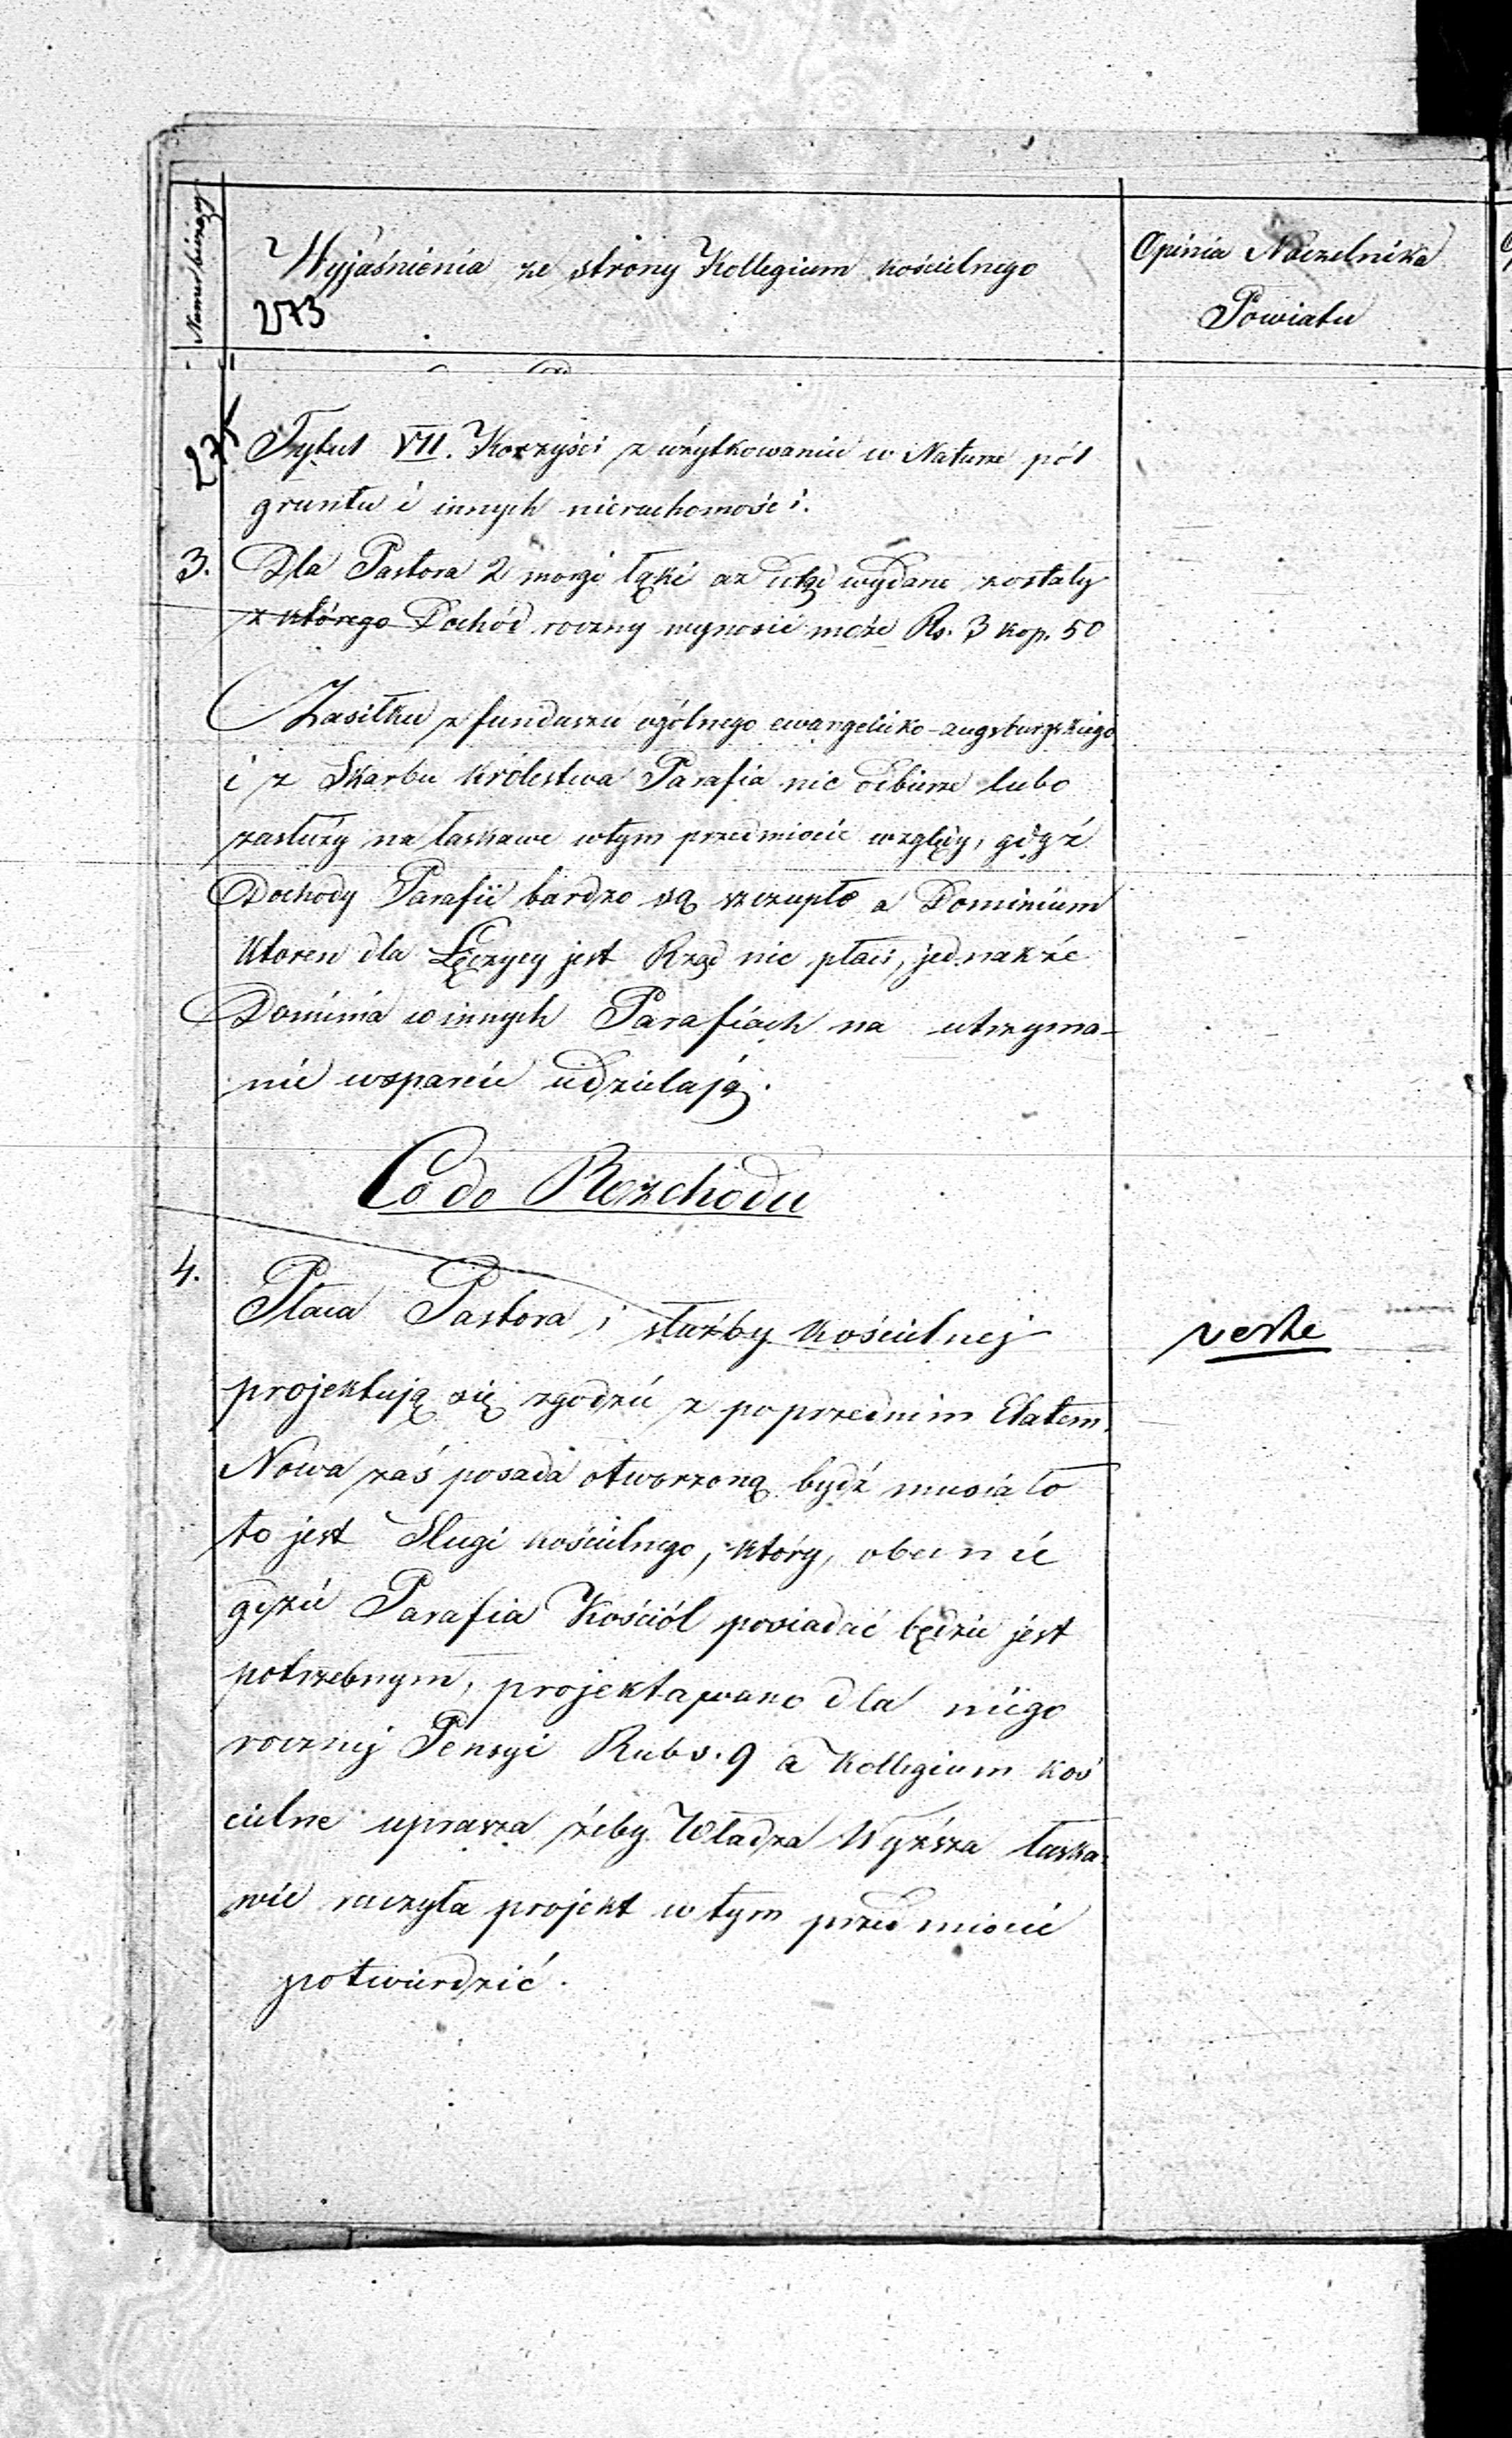 Numer bieżący
Wyjaśnienia ze strony Kollegium kościelnego
273
Opinia Naczelnika
Powiatu
Tytuł VII. Korzyści z użytkowania w Naturze pól
gruntu i innych nieruchomości.
3. Dla Pastora 2 morgi łąki wydane zostały
z którego Dochód roczny wynosić może Rs. 3 kop. 50
Zasiłku z funduszu ogólnego ewangelicko-augsburgskiego
i z Skarbu Królestwa Parafia nie odbierze lubo
zasłuży na łaskawe w tym przedmiocie względy, gdyż
Dochody Parafii bardzo są szczupłe a Dominium
ktoren dla Łęczycy jest Rząd nic płaci, jednakże
Dominia w innych Parafiach na utrzyma-
nie wsparcie udzielają.
Co do Rozchodu
4. Płaca Pastora i służby kościelnej
projektują się zgodzie z poprzednim Etatem.
Nowa zaś posada otworzoną bydź musiało
to jest Sługi kościelnego, który, obecnie
gdzie Parafia Kościół posiadać będzie jest
potrzebnym, projektowano dla niego
rocznej Pensyi Rubs. 9 a Kollegium koś
cielne uprasza żeby Władza Wyższa łaska-
wie raczyła projekt w tym przedmiocie
potwierdzić.